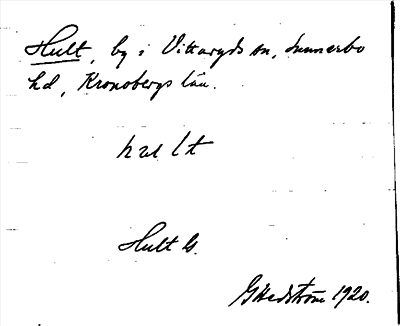 Hult, by i Vittaryds sn, Sunnerbo
hd, Kronobergs län.
hult
Hult G.
GHedström 1920.